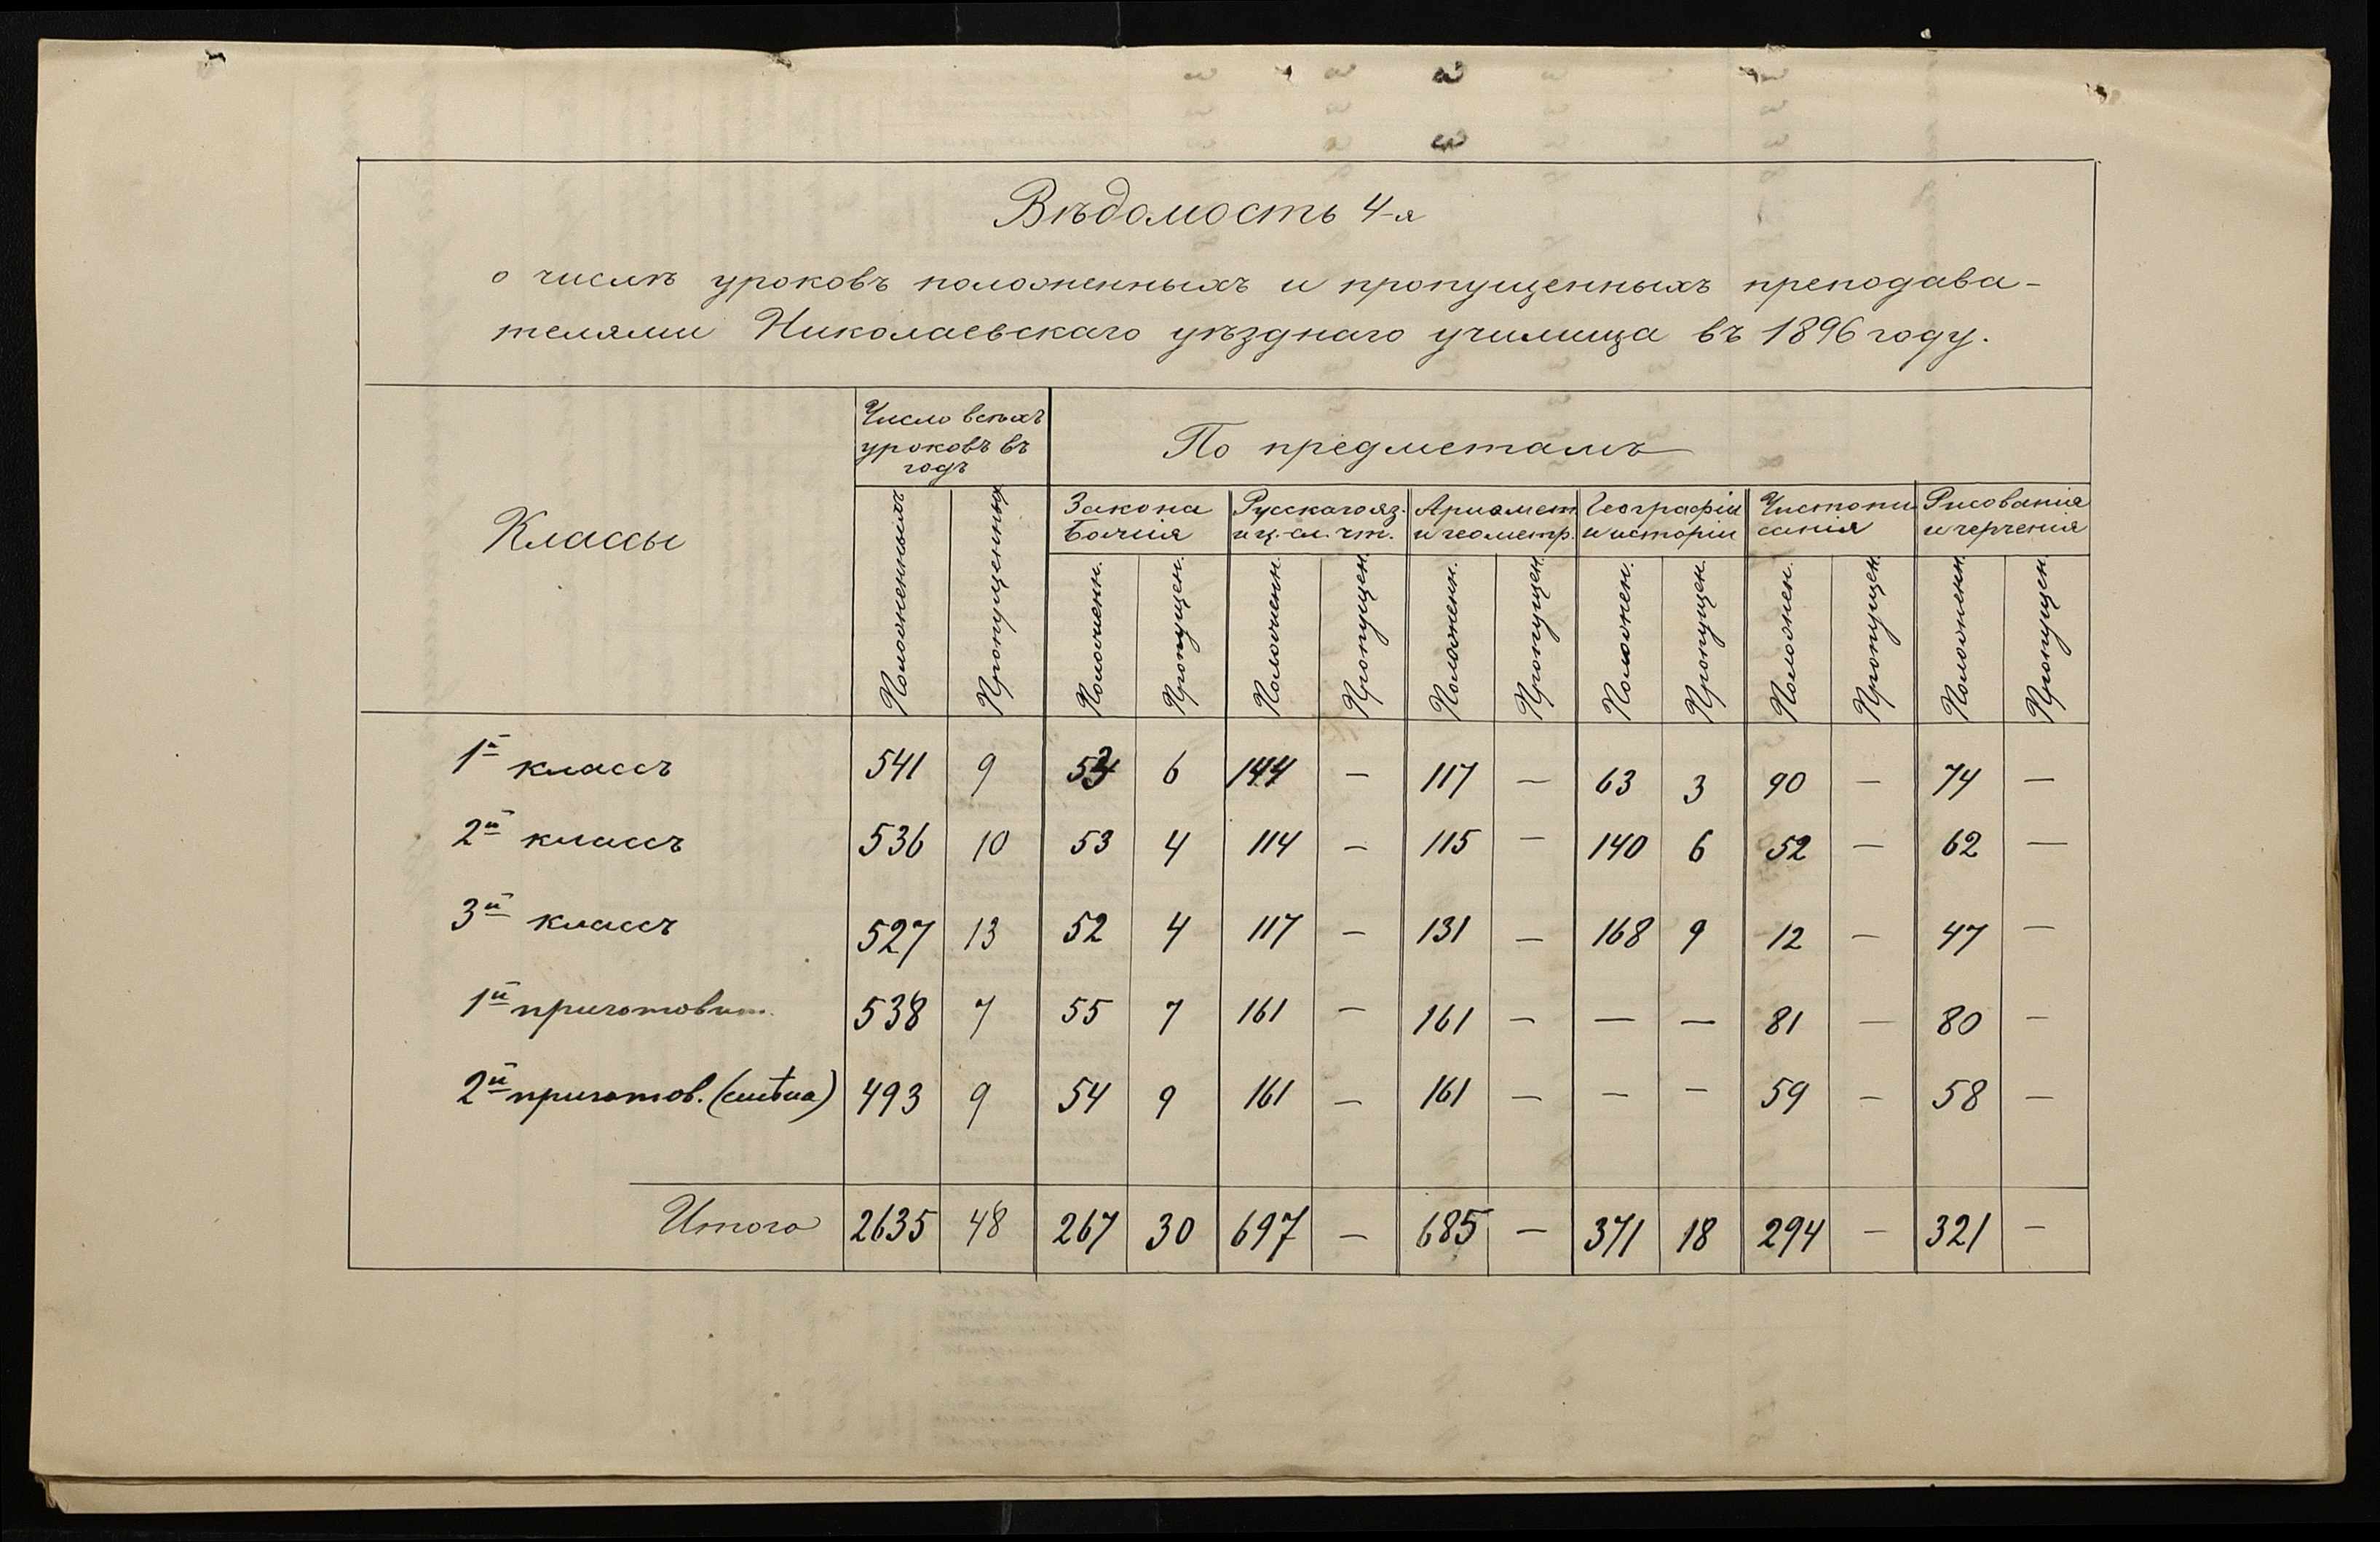 Вѣдомость 4-я
о числѣ уроковъ положенныхъ и пропущенныхъ преподава-
телями Николаевскаго уѣзднаго училища въ 1896 году.
Классы
Число всѣхъ
уроковъ въ
годъ
По предметамъ
Положенныхъ
Пропущенныхъ
Закона
Божія
Русскаго яз.
и ц.-сл. чт.
Ариѳмет.
и геометр.
Географіи
и исторіи
Чистопи
санія
Рисованія
и черченія
Положенн.
Пропущен.
Положенн.
Пропущен.
Положенн.
Пропущен.
Положен.
Пропущен.
Положен.
Пропущен.
Положенн.
Пропущен.
1й классъ 541 9 53 6 144 — 117 — 63 3 90 — 74 —
2й классъ 536 10 53 4 114 — 115 — 140 6 52 — 62 —
3й классъ 527 13 52 4 117 — 131 — 168 9 12 — 47 —
1й приготовит. 538 7 55 7 161 — 161 — — — 81 — 80 —
2й приготов. (смѣна) 493 9 54 9 161 — 161 — — — 59 — 58 —
Итого 2635 48 267 30 697 — 685 — 371 18 294 — 321 —